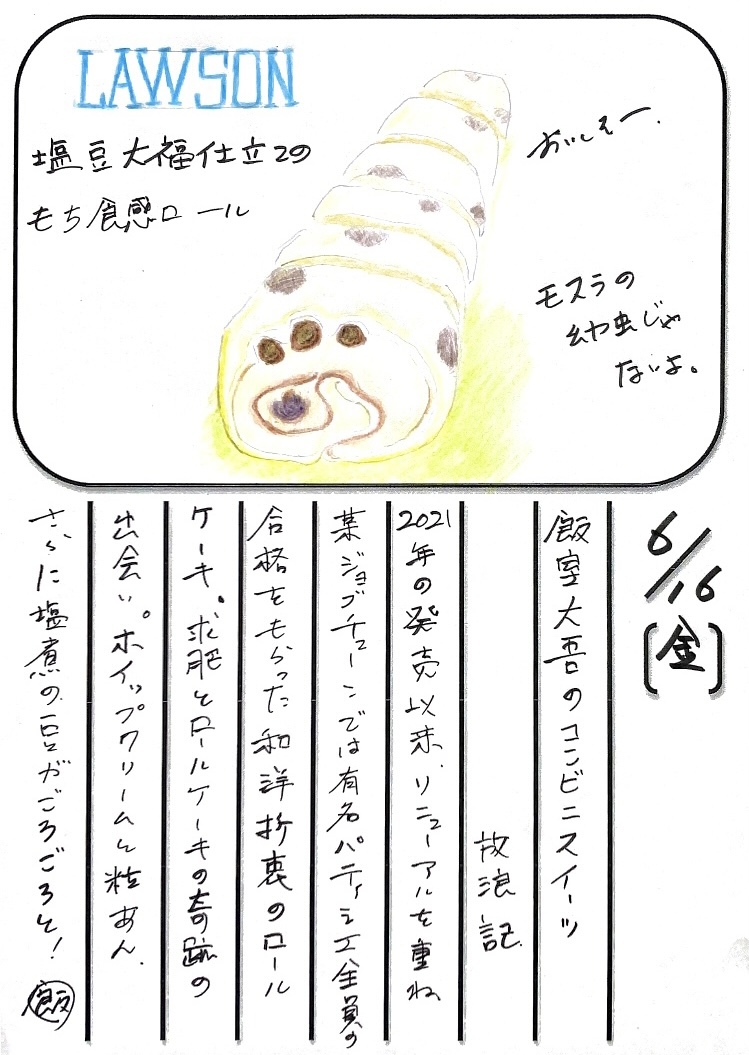 LAWSON
塩豆大福仕立ての
もち食感ロール
おいしそー.
モスラの
幼虫じゃ
ないよ。
6/16
[金]
飯室大吾のコンビニスイーツ
放浪記
2021年の発売以来、リニューアルを重ね
某ジョブチューンでは有名パティシエ全員の
合格をもらった和洋折衷のロール
ケーキ。求肥とロールケーキの奇跡の
出会い。ホイップクリームと粒あん、
さらに塩煮の豆がごろごろと!
飯